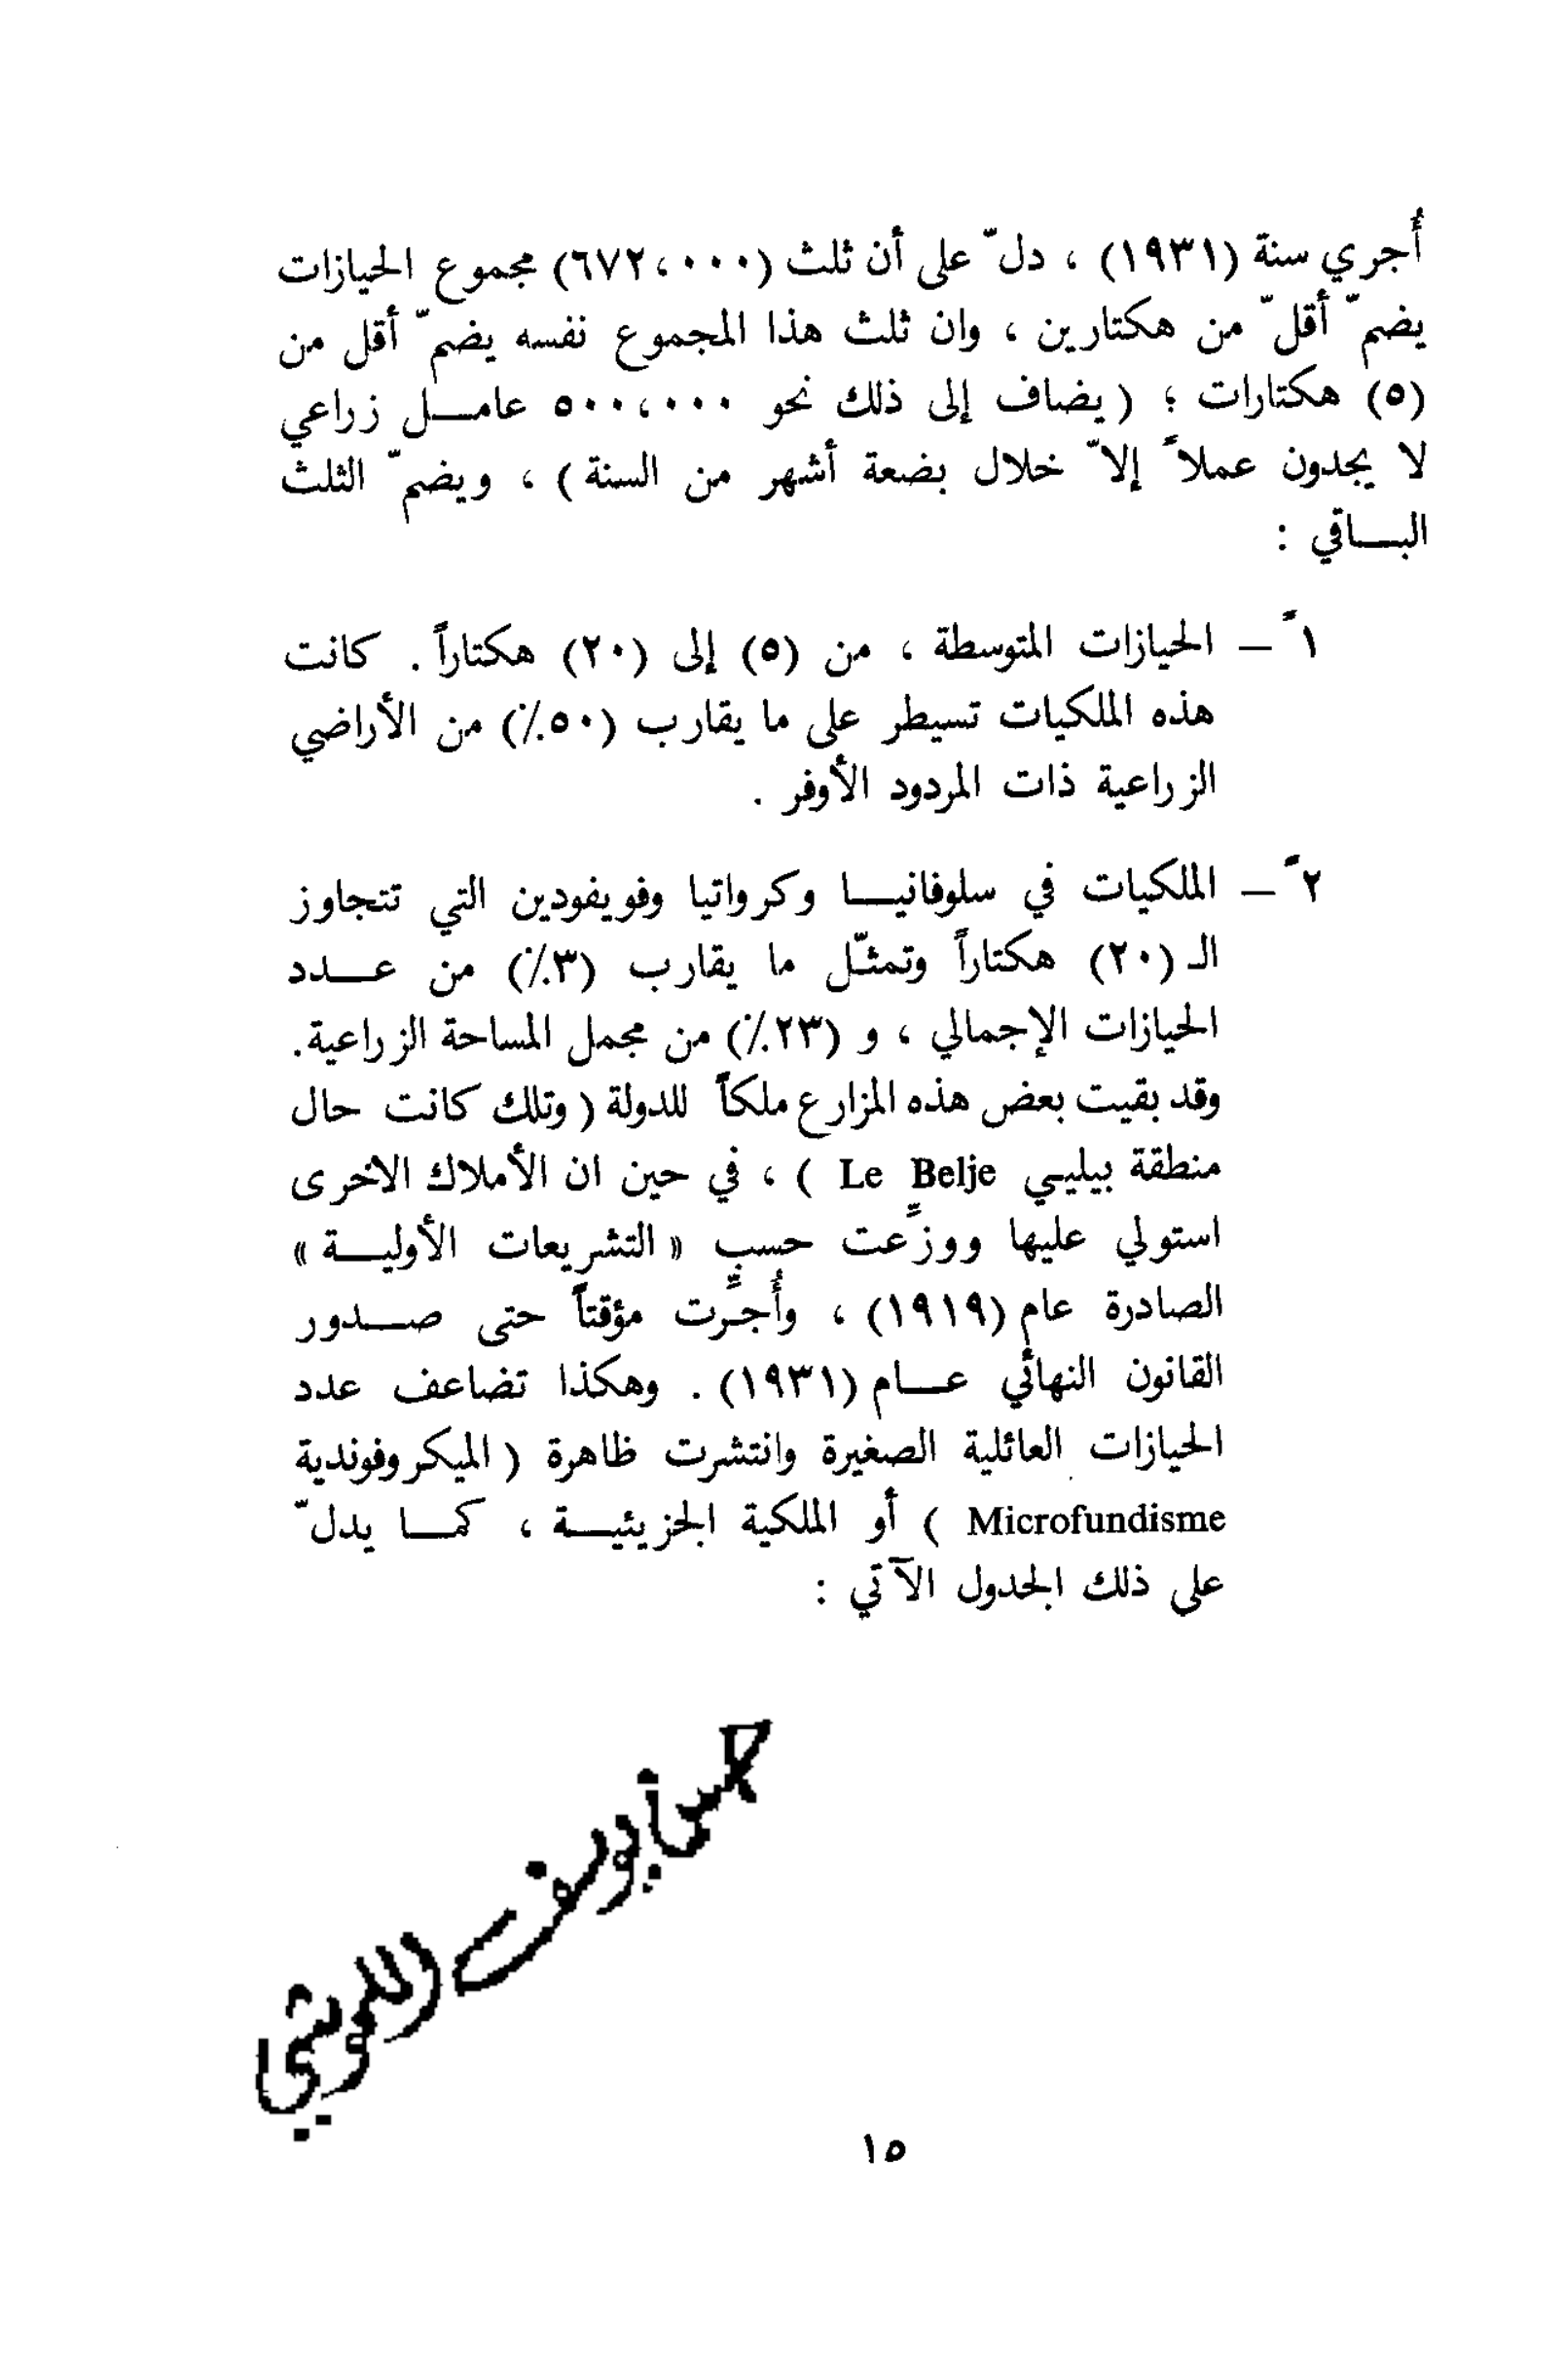 أُجري سنة (١٩٣١) ، دلّ على أن ثلث (٦٧٢،٠٠٠) مجموع الحيازات
يضمّ أقلّ من هكتارين ، وان ثلث هذا المجموع نفسه يضمّ أقل من
(٥) هكتارات ؛ ( يضاف إلى ذلك نحو ٥٠٠،٠٠٠ عامــل زراعي
لا يجدون عملاً إلاّ خلال بضعة أشهر من السنة ) ، ويضمّ الثلث
البــاقي :
١ً – الحيازات المتوسطة ، من (٥) إلى (٢٠) هكتاراً . كانت
هذه الملكيات تسيطر على ما يقارب (٥٠٪) من الأراضي
الزراعية ذات المردود الأوفر .
٢ً – الملكيات في سلوفانيــا وكرواتيا وفويفودين التي تتجاوز
الـ (٢٠) هكتاراً وتمثّل ما يقارب (٣٪) من عــدد
الحيازات الإجمالي ، و (٢٣٪) من مجمل المساحة الزراعية.
وقد بقيت بعض هذه المزارع ملكاً للدولة ( وتلك كانت حال
منطقة بيليـي Le Belje ) ، في حين ان الأملاك الاخرى
استولي عليها ووزِّعت حسب « التشريعات الأوليــة »
الصادرة عام (١٩١٩) ، وأُجِّرت مؤقتاً حتى صــدور
القانون النهائي عــام (١٩٣١) . وهكذا تضاعف عدد
الحيازات العائلية الصغيرة وانتشرت ظاهرة ( الميكروفوندية
Microfundisme ) أو الملكية الجزيئيــة ، كمــا يدلّ
على ذلك الجدول الآتي :
١٥